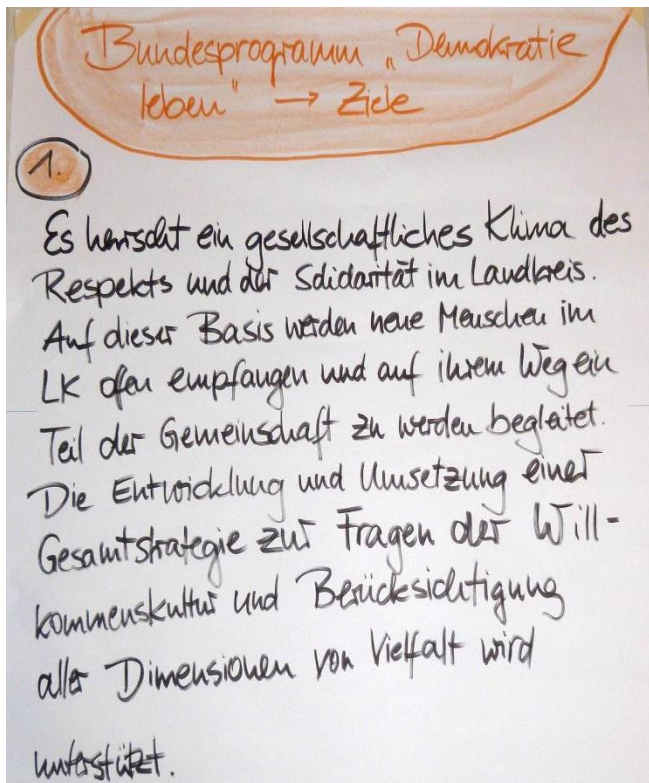 Bundesprogramm „Demokratie
leben" → Ziele
1.
Es herrscht ein gesellschaftliches Klima des
Respekts und der Solidarität im Landkreis.
Auf dieser Basis werden neue Menschen im
LK offen empfangen und auf ihrem Weg ein
Teil der Gemeinschaft zu werden begleitet.
Die Entwicklung und Umsetzung einer
Gesamtstrategie zur Fragen der Will-
kommenskultur und Berücksichtigung
aller Dimensionen von Vielfalt wird
unterstützt.